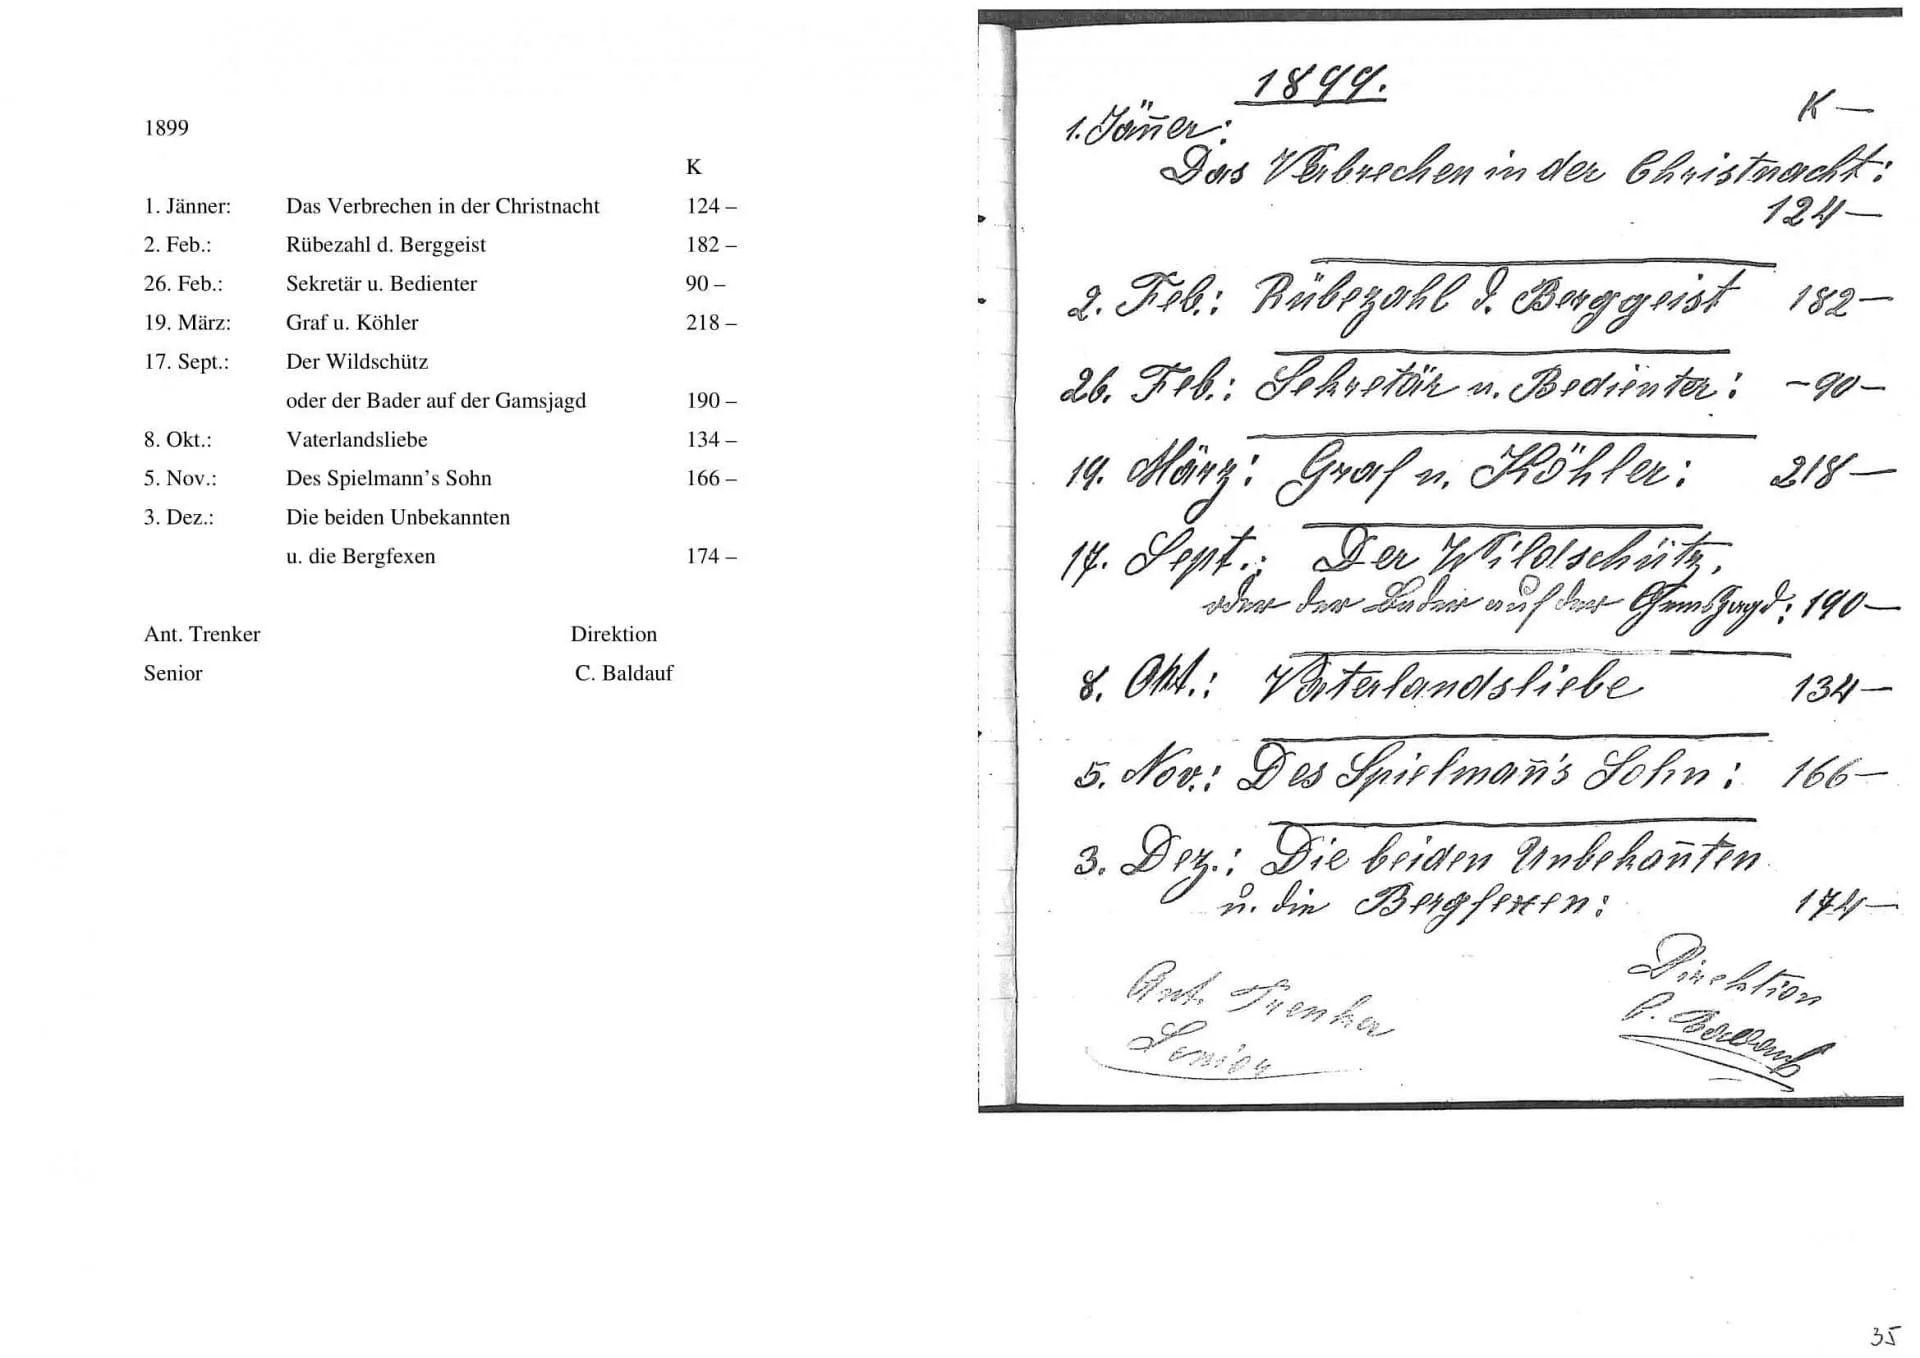 1899
K
1. Jänner: Das Verbrechen in der Christnacht 124 –
2. Feb.: Rübezahl d. Berggeist 182 –
26. Feb.: Sekretär u. Bedienter 90 –
19. März: Graf u. Köhler 218 –
17. Sept.: Der Wildschütz
oder der Bader auf der Gamsjagd 190 –
8. Okt.: Vaterlandsliebe 134 –
5. Nov.: Des Spielmann’s Sohn 166 –
3. Dez.: Die beiden Unbekannten
u. die Bergfexen 174 –
Ant. Trenker Direktion
Senior C. Baldauf
1899.
K —
1. Jäñer:
Das Verbrechen in der Christnacht:
124 —
2. Feb.: Rübezahl d. Berggeist 182 —
26. Feb.: Sekretär u. Bedienter: – 90 —
19. März: Graf u. Köhler: 218 —
17. Sept.: Der Wildschütz,
oder der Bader auf der Gemsjagd: 190 —
8. Okt.: Vaterlandsliebe 134 —
5. Nov.: Des Spielmañ's Sohn: 166 —
3. Dez.: Die beiden Unbekañten
u. die Bergfexen: 174 —
Ant. Trenker
Senior
Direktion
C. Baldauf
35